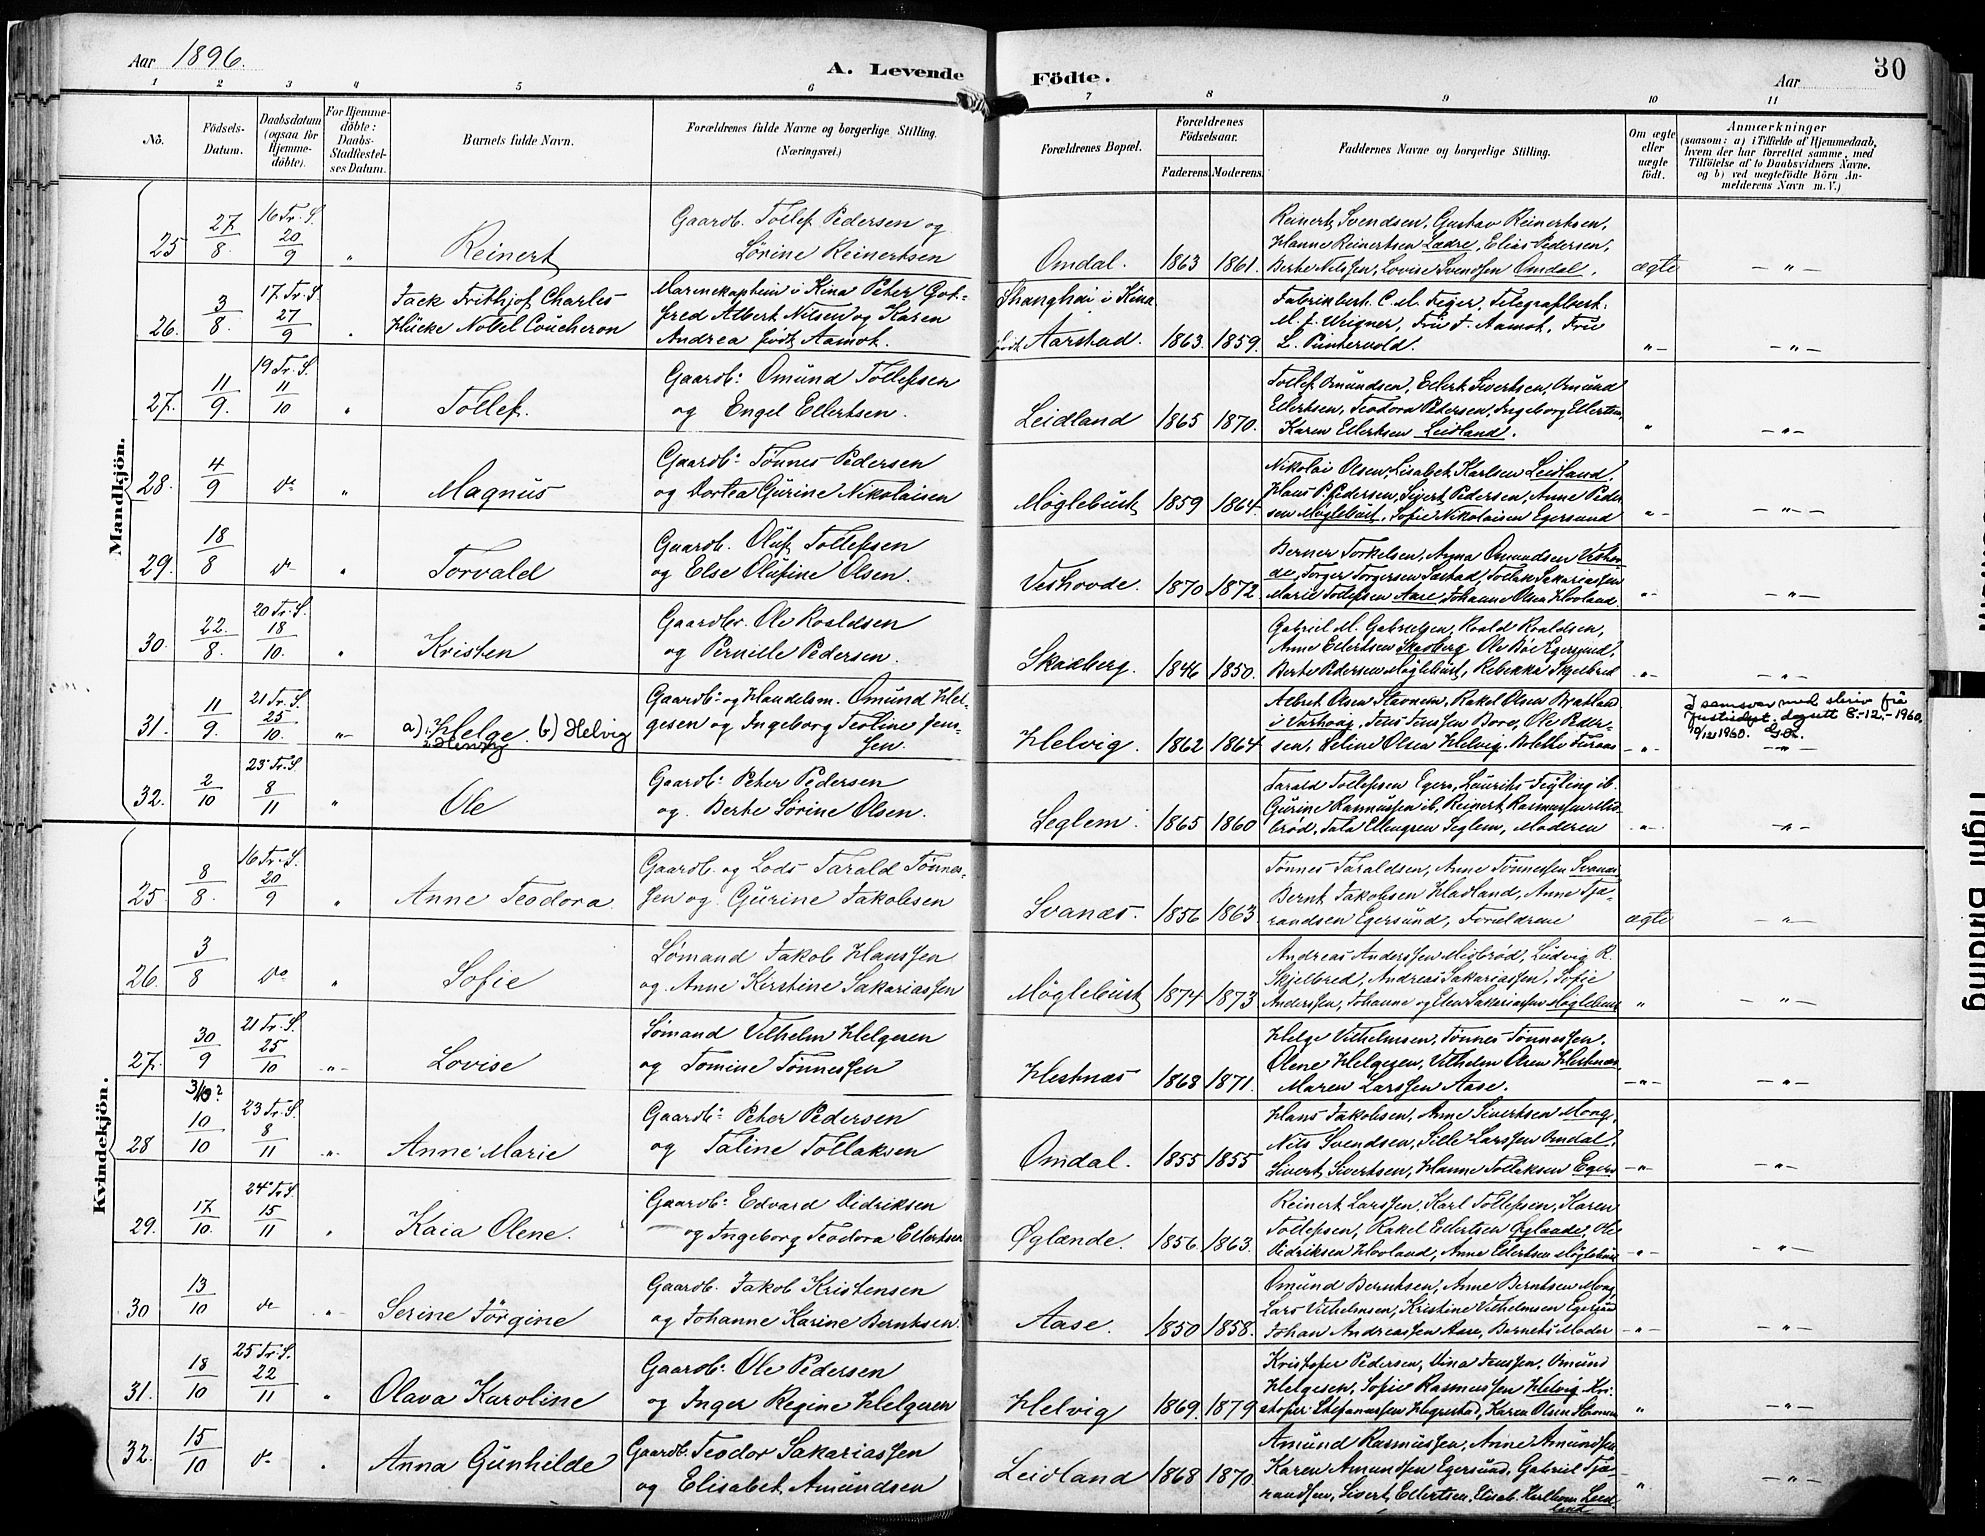 Aar 1896.
A. Levende Födte.
Aar
30
1 2 3 4 5 6 7 8 9 10 11
No.
Födsels-
Datum.
Daabsdatum
(ogsaa for
Hjemme-
döbte).
For Hjemme-
döbte:
Daabs-
Stadfæstel-
ses Datum.
Barnets fulde Navn.
Forældrenes fulde Navne og borgerlige Stilling.
(Næringsvei.)
Forældrenes Bopæl.
Forældrenes
Födselsaar.
Faderens. Moderens.
Faddernes Navne og borgerlige Stilling.
Om ægte
eller
uægte
födt.
Anmærkninger
(saasom: a) i Tilfælde af Hjemmedaab,
hvem der har forrettet samme, med
Tilföielse af to Daabsvidners Navne.
og b) ved uægtefödte Börn An-
melderens Navn m. V.)
Mandkjön.
25 27/8 16 Tr. S. 20/9 " Reinert
Gaardb. Tollef Pedersen og
Sørine Reinertsen
Omdal. 1863 1861.
Reinert Svendsen, Gustav Reinertsen,
Hanne Reinertsen Lædre, Elias Pedersen,
Berte Nilssen, Lovise Svendsen Omdal.
ægte — " —
26. 3/8. 17 Tr. S. 27/9 "
Jack Frithjof Charles
Hücke Nobel Coucheron
Marinekaptein i Kina Peter Got-
fred Albert Nilsen og Karen
Andrea født Aamot.
Shanghai i Kina
født Aarstad. 1863. 1859.
Fabrikbest. C. M. Feyer, Telegrafbest.
M. J. Weigner, Fru J. Aamot, Fru
L. Puntervold.
" — — " —
27. 11/9. 19 Tr. S. 11/10 " Tollef.
Gaardb: Omund Tollefsen
og Engel Ellertsen.
Leidland 1865 1870.
Tollef Omundsen, Ellert Sivertsen, Omund
Ellertsen, Teodora Pedersen, Ingeborg Ellertsen,
Karen Ellertsen Leidland.
" — " —
28. 4/9 do " Magnus
Gaardb: Tønnes Pedersen
og Dortea Gurine Nikolaisen
Møglebust 1859 1864.
Nikolai Olsen, Lisabet Karlsen Leidland,
Hans P. Pedersen, Sivert Pedersen, Anne Peder-
sen Møglebust, Sofie Nikolaisen Egersund
" — — " —
29. 18/8 do " Torvald
Gaardb. Oluf Tollefsen
og Else Olufine Olsen.
Veshovde. 1870 1872.
Berner Torkelsen, Anna Omundsen Veshov-
de, Torger Torgersen Sæstad, Tollak Sakariassen
Marie Tollefsen Aase, Johanne Olsen Hovland.
" — — " —
30. 22./8. 20 Tr. S. 18/10. " Kristen
Gaardbr. Ole Roaldsen
og Pernille Pedersen.
Skadberg. 1846 1850.
Gabriel M. Gabrielsen, Roald Roaldsen,
Anne Ellertsen Skadberg, Ole Bøe Egersund,
Berte Pedersen Møglebust, Rebekka Skjelbred
" — — " —
31. 11/9. 21 Tr. S. 25/10. " —
a) 1. Helge. b) Helvig
2. Henrig
Gaardb: og Handelsm. Omund Hel-
gesen og Ingeborg Teoline Jens-
sen.
Helvig. 1862 1864
Albret Olsen Stavnem, Rakel Olsen Bratland
i Varhoug, Jens Jenssen Boro, Ole Peder-
sen, Seline Olsen Helvig. Bolette
— " —
I samsvar med skriv frå
Justisdept. dagsett 8.-12.-1960.
10/12 1960.
— " —
32. 2/10 23 Tr. S. 8/11 " Ole
Gaardb: Peter Pedersen
og Berte Sørine Olsen.
Seglem. 1865 1860
Tarald Tollefsen Egers, Laurits Tegling ib.
Gurine Rasmussen ib, Reinert Rasmussen Mid-
brød, Tala Ellingsen Seglem, Moderen
— " — — " —
Kvindekjön.
25 8/8. 16 Tr. S. 20/9 " Anne Teodora.
Gaardb. og Lods Tarald Tønnes-
sen og Gurine Jakobsen
Svanæs. 1856 1863.
Tønnes Taraldsen, Anne Tønnessen Svanæs
Bernt Jakobsen Hadland, Anne Tja-
randsen Egersund, Forældrene
ægte — " —
26. 3/8 do " Sofie
Sømand Jakob Hanssen
og Anne Kirstine Sakariassen
Møglebust 1874 1873
Andreas Anderssen Midbrød, Ludvig R.
Skjelbred, Andreas Sakariassen, Sofie
Anderssen, Johanne og Elen Sakariassen Møglebust
" — " —
27. 30/9 21 Tr. S. 25/10 " — Lovise
Sømand Vilhelm Helgesen
og Tomine Tønnessen
Hestnæs 1868 1871.
Helge Vilhelmsen, Tønnes Tønnessen,
Olene Helgesen, Vilhelm Olsen Hestnæs
Maren Larssen Aase.
— " — — " —
3/10?
28 10/10 23 Tr. S. 8/11 " — Anne Marie
Gaardb: Peter Pedersen
og Taline Tollaksen
Omdal. 1855 1855
Hans Jakobsen, Anne Sivertsen Mong,
Nils Svendsen, Sille Larssen Omdal,
Sivert Sivertsen, Hanne Tollaksen Egers
— " — — " —
29. 17/10. 24 Tr. S. 15/11 " Kaia Olene.
Gaardb: Edvard Didriksen
og Ingeborg Teodora Ellertsen
Øglænde. 1856. 1863.
Reinert Larssen, Karl Tollefsen, Karen
Tollefsen, Rakel Ellertsen Øglænde, Ole
Didriksen Hovland, Anne Ellertsen Møglebust
— " — — " —
30 13/10 do " — Serine Jørgine
Gaardb. Jakob Kristensen
og Johanne Karine Berntsen.
Aase. 1850 1858.
Omund Berntsen, Anne Berntsen Mong,
Lars Vilhelmsen, Kristine Vilhelmsen Egersund
Johan Andreassen Aase, Barnets Moder
— " — — " —
31. 18/10 25 Tr. S. 22/11 " Olava Karoline
Gaardb: Ole Pedersen
og Inger Regine Helgesen
Helvig 1869. 1879
Kristofer Pedersen, Dina Jenssen, Omund
Helgesen, Sofie Rasmussen Helvig. Kri-
stofer Stefanussen Hegrestad, Karen Olsen
" — " —
32. 15/10 do " Anna Gunhilde
Gaardb: Teodor Sakariassen
og Elisabet Amundsen
Leidland 1868 1870.
Amund Rasmussen, Anne Amundsen
Karen Amundsen Egersund, Gabriel Tja-
randsen, Sivert Ellertsen, Elisab. Karlsen Leid-
land
" — " —